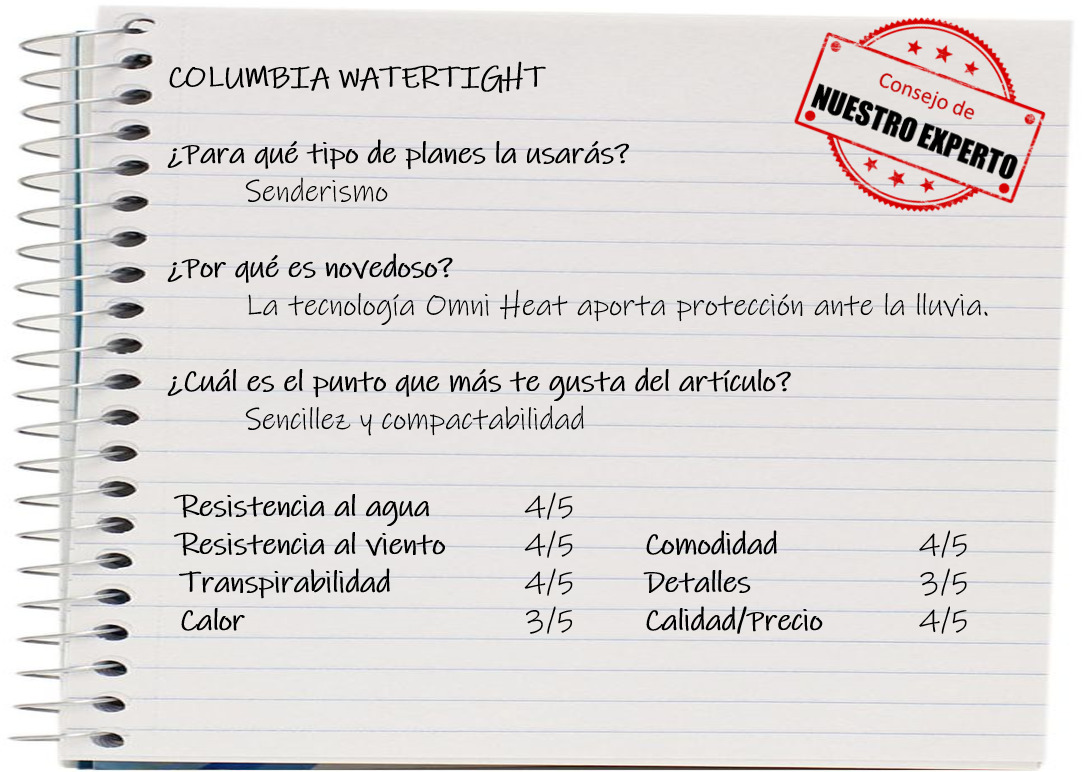 COLUMBIA WATERTIGHT
Consejo de
NUESTRO EXPERTO
¿Para qué tipo de planes la usarás?
Senderismo
¿Por qué es novedoso?
La tecnología Omni Heat aporta protección ante la lluvia.
¿Cuál es el punto que más te gusta del artículo?
Sencillez y compactabilidad
Resistencia al agua 4/5
Resistencia al viento 4/5 Comodidad 4/5
Transpirabilidad 4/5 Detalles 3/5
Calor 3/5 Calidad/Precio 4/5